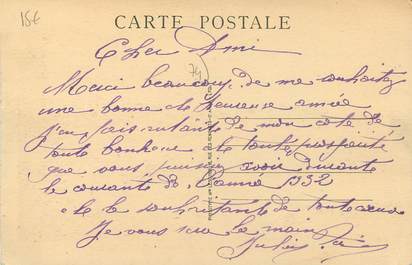 15€
CARTE POSTALE
Cher Ami
79
Merci beaucoup de me souhaitez
une bonne et heureuse année
j'en fais autant de mon coté de
tout bonheur et toute prosperité
que vous puissiez avoir durante
le courante de l'année 1932
et le souhaitant de tout cœur
Je vous serre la main
Jules